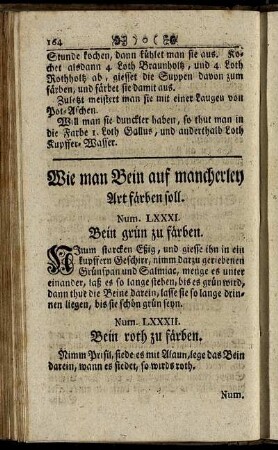 164 ) o (
Stunde kochen, dann kühlet man sie aus. Ko-
chet alsdann 4. Loth Braunholtz, und 4. Loth
Rothholtz ab, giesset die Suppen davon zum
färben, und färbet sie damit aus.
Zuletzt meistert man sie mit einer Laugen von
Pot-Aschen.
Will man sie dunckler haben, so thut man in
die Farbe 1. Loth Gallus, und anderthalb Loth
Kupffer-Wasser.
Wie man Bein auf mancherley
Art färben soll.
Num. LXXXI.
Bein grün zu färben.
NImm starcken Eßig, und giesse ihn in ein
kupffern Geschirr, nimm darzu geriebenen
Grünspan und Salmiac, menge es unter
einander, laß es so lange stehen, bis es grün wird,
dann thut die Beine darein, lasse sie so lange drin-
nen liegen, bis sie schön grün seyn.
Num. LXXXII.
Bein roth zu färben.
Nimm Prisil, siede es mit Alaun, lege das Bein
darein, wann es siedet, so wirds roth.
Num.